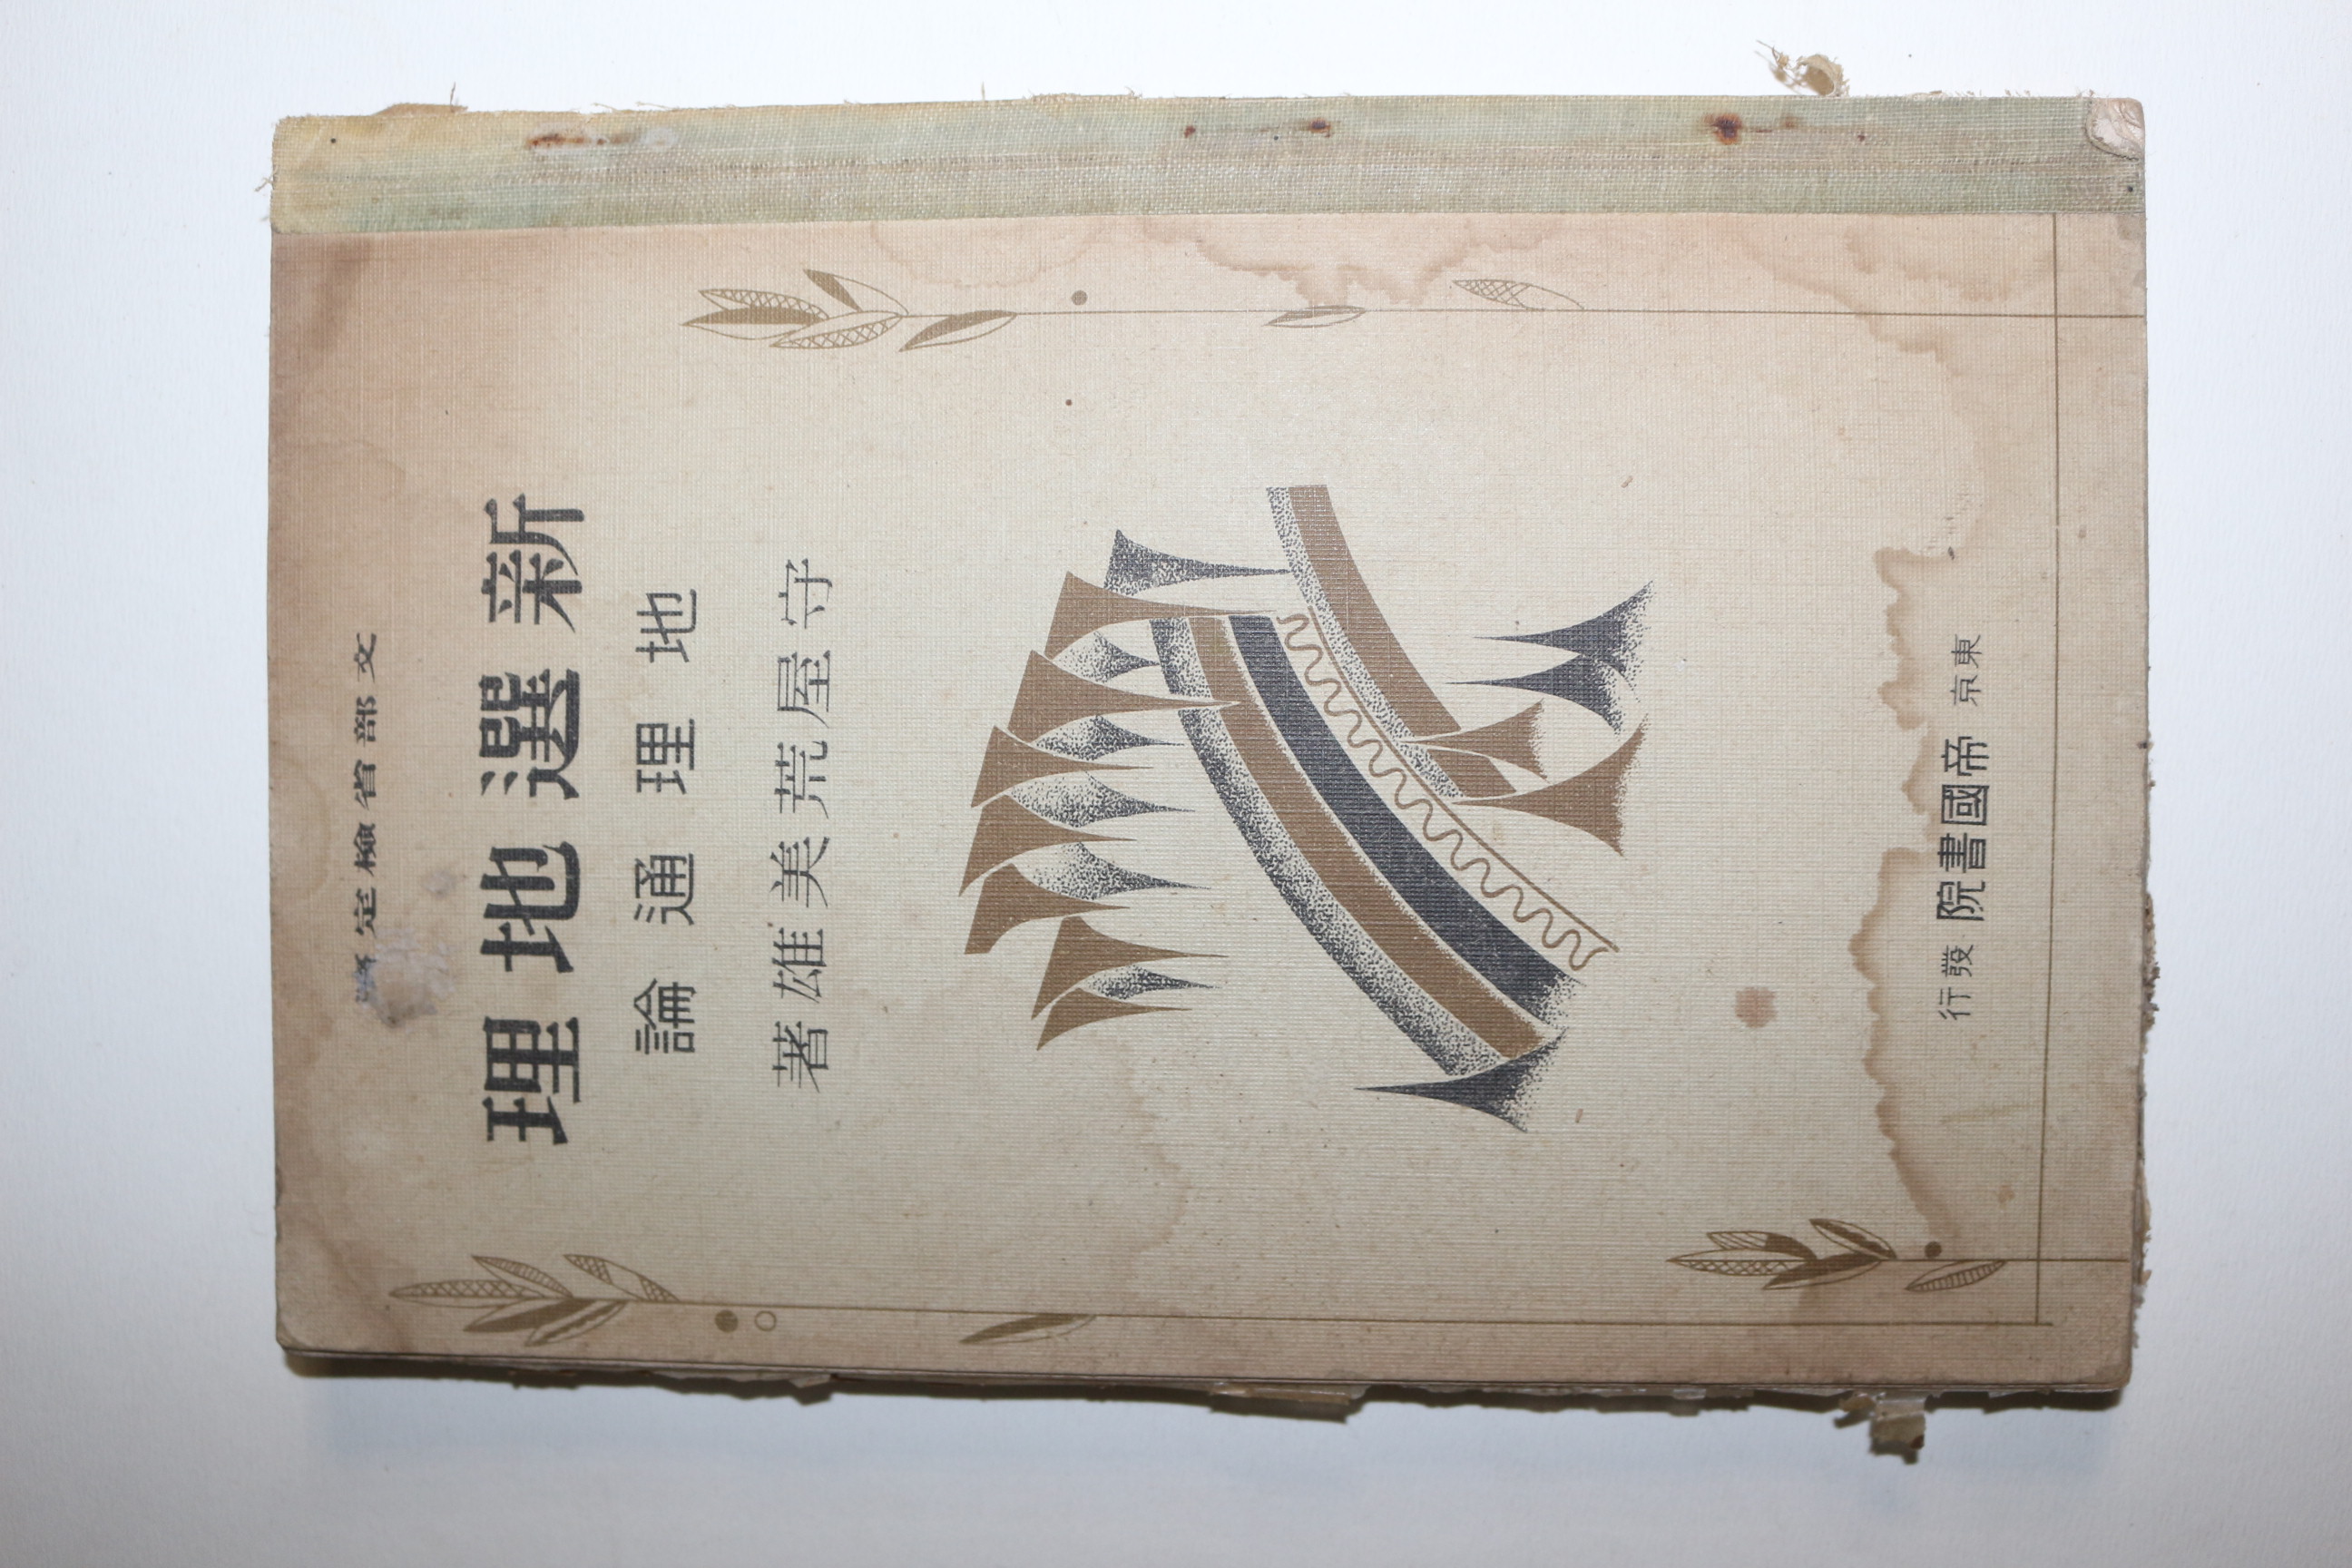 文部省檢定濟
新選地理
地理通論
守屋荒美雄著
東京 帝國書院 發行